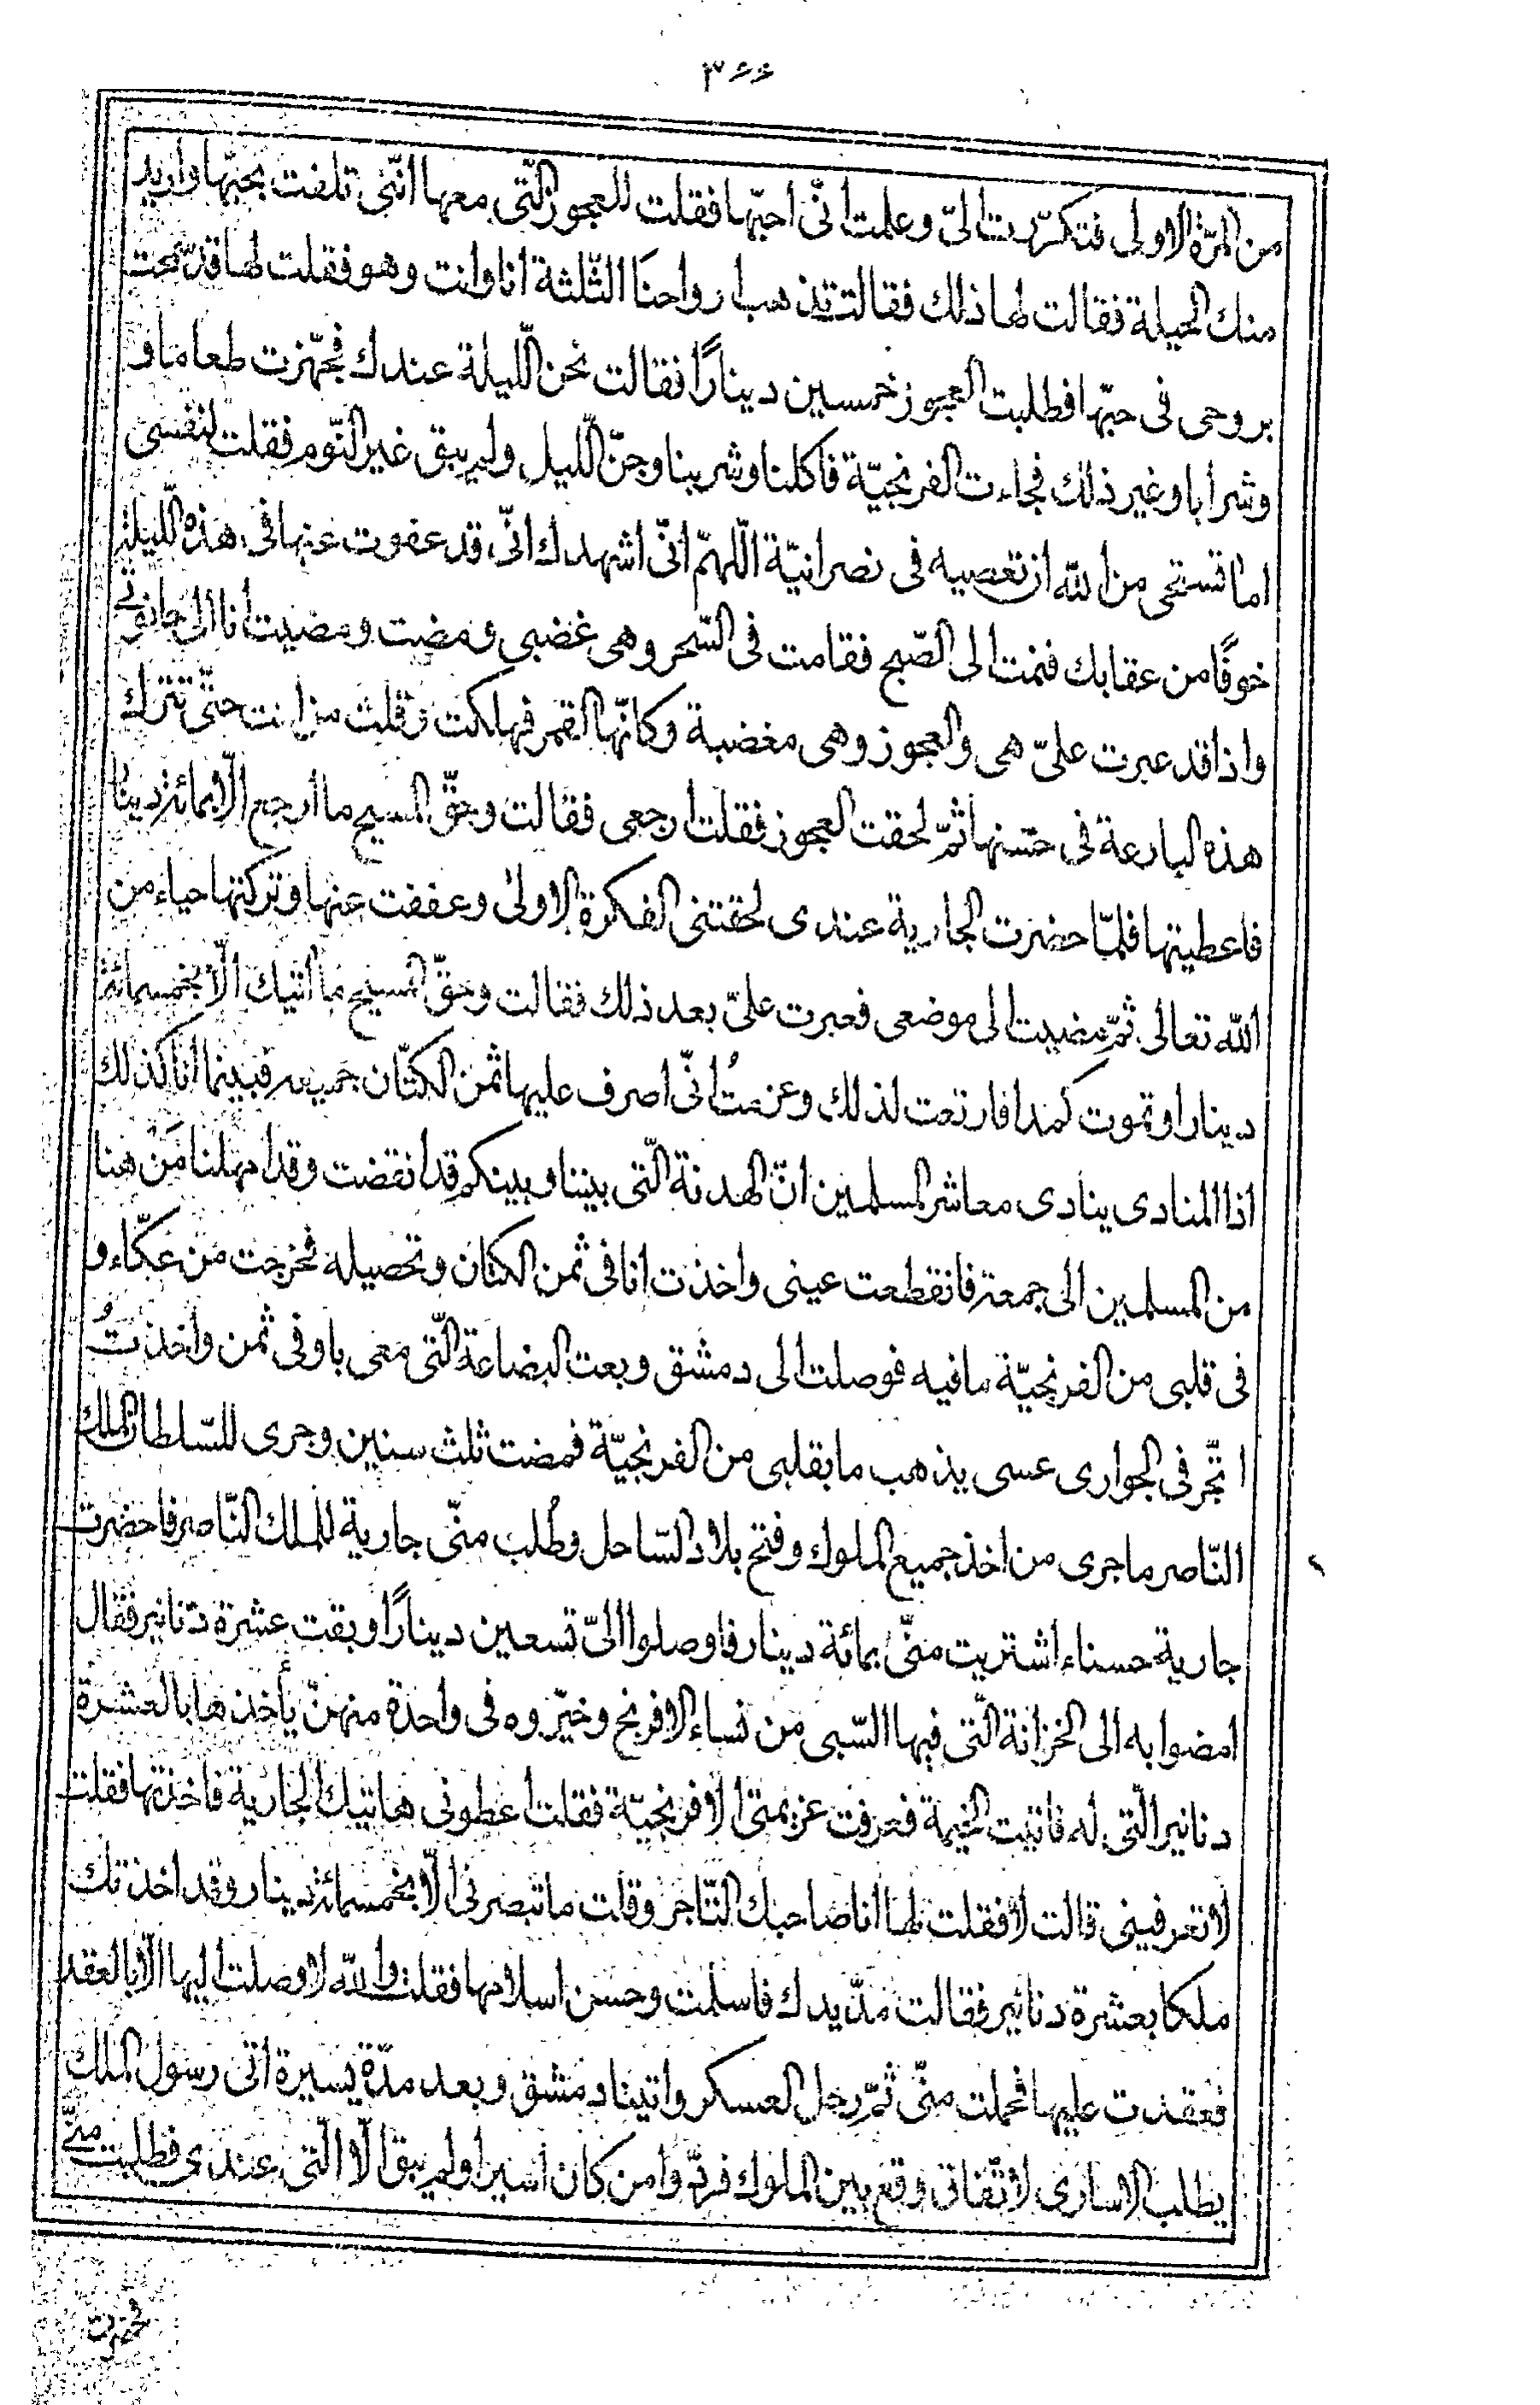 ٣٤٤
من المرّة الاولى فتكرّرت الىّ وعلمت انّى احبّها فقلت للعجوز الّتى معها انّنى تلفت بحبّها واريد
منك الحيلة فقالت لها ذلك فقالت تذهب ارواحنا الثّلثة انا وانت وهو فقلت لها قد سمحت
بروحى فى حبّها فطلبت العجوز خمسين دينارًا فقالت نحن اللّيلة عندك فجهّزت طعاما و
وشرابا وغير ذلك فجاءت الفرنجيّة فاكلنا وشربنا وجنّ اللّيل ولم يبق غير النّوم فقلت لنفسى
اما تستحى من اللّه ان تعصيه فى نصرانيّة اللّهمّ انّى اشهدك انّى قد عفوت عنها فى هذه اللّيلة
خوفًا من عقابك فنمت الى الصّبح فقامت فى السّحر وهى غضبى ومضت ومضيت انا الى حانوتى
واذا قد عبرت علىّ هى والعجوز وهى مغضبة وكانّها القمر فهلكت وقلت من انت حتّى تترك
هذه البارعة فى حسنها ثمّ لحقت العجوز فقلت ارجعى فقالت وحقّ المسيح ما ارجع الّا بمائة دينار
فاعطيتها فلمّا حضرت الجارية عندى لحقتنى الفكرة الاولى وعففت عنها وتركتها حياء من
اللّه تعالى ثمّ مضيت الى موضعى فعبرت علىّ بعد ذلك فقالت وحقّ المسيح ما اتيك الّا بخمسمائة
دينار او تموت كمدا فارتعت لذلك وعزمتُ انّى اصرف عليها ثمن الكتّان جميعه فبينما انا كذلك
اذا المنادى ينادى معاشر المسلمين انّ الهدنة الّتى بيننا وبينكم قد انقضت وقد امهلنا مَن هنا
من المسلمين الى جمعة فانقطعت عينى واخذت انا فى ثمن الكتان وتحصيله فخرجت من عكّاء و
فى قلبى من الفرنجيّة ما فيه فوصلت الى دمشق وبعت البضاعة الّتى معى باوفى ثمن واخذتُ
اتّجر فى الجوارى عسى يذهب ما بقلبى من الفرنجيّة فمضت ثلث سنين وجرى للسّلطان الملك
النّاصر ما جرى من اخذ جميع الملوك وفتح بلاد السّاحل وطُلب منّى جارية للملك النّاصر فاحضرت
جارية حسناء اشتريت منّى بمائة دينار فاوصلوا الىّ تسعين دينارًا وبقت عشرة دنانير فقال
امضوا به الى الخزانة الّتى فيها السّبى من نساء الافرنج وخيّروه فى واحدة منهنّ يأخذها بالعشرة
دنانير الّتى له فاتيت الخيمة فعرفت غريمتى الافرنجيّة فقلت اعطونى هاتيك الجارية فاخذتها فقلت
لا تعرفينى قالت لا فقلت لها انا صاحبك التّاجر وقلت ما تبصرنى الّا بخمسمائة دينار وقد اخذتك
ملكا بعشرة دنانير فقالت مدّ يدك فاسلمت وحسن اسلامها فقلت واللّه لا وصلت اليها الّا بالعقد
فعقدت عليها فحملت منّى ثمّ رحل العسكر واتينا دمشق وبعد مدّة يسيرة اتى رسول الملك
يطلب الاسارى لاتّفاق وقع بين الملوك فردّوا من كان اسيرا ولم يبق الّا الّتى عندى فطلبت منّى
فحضرت